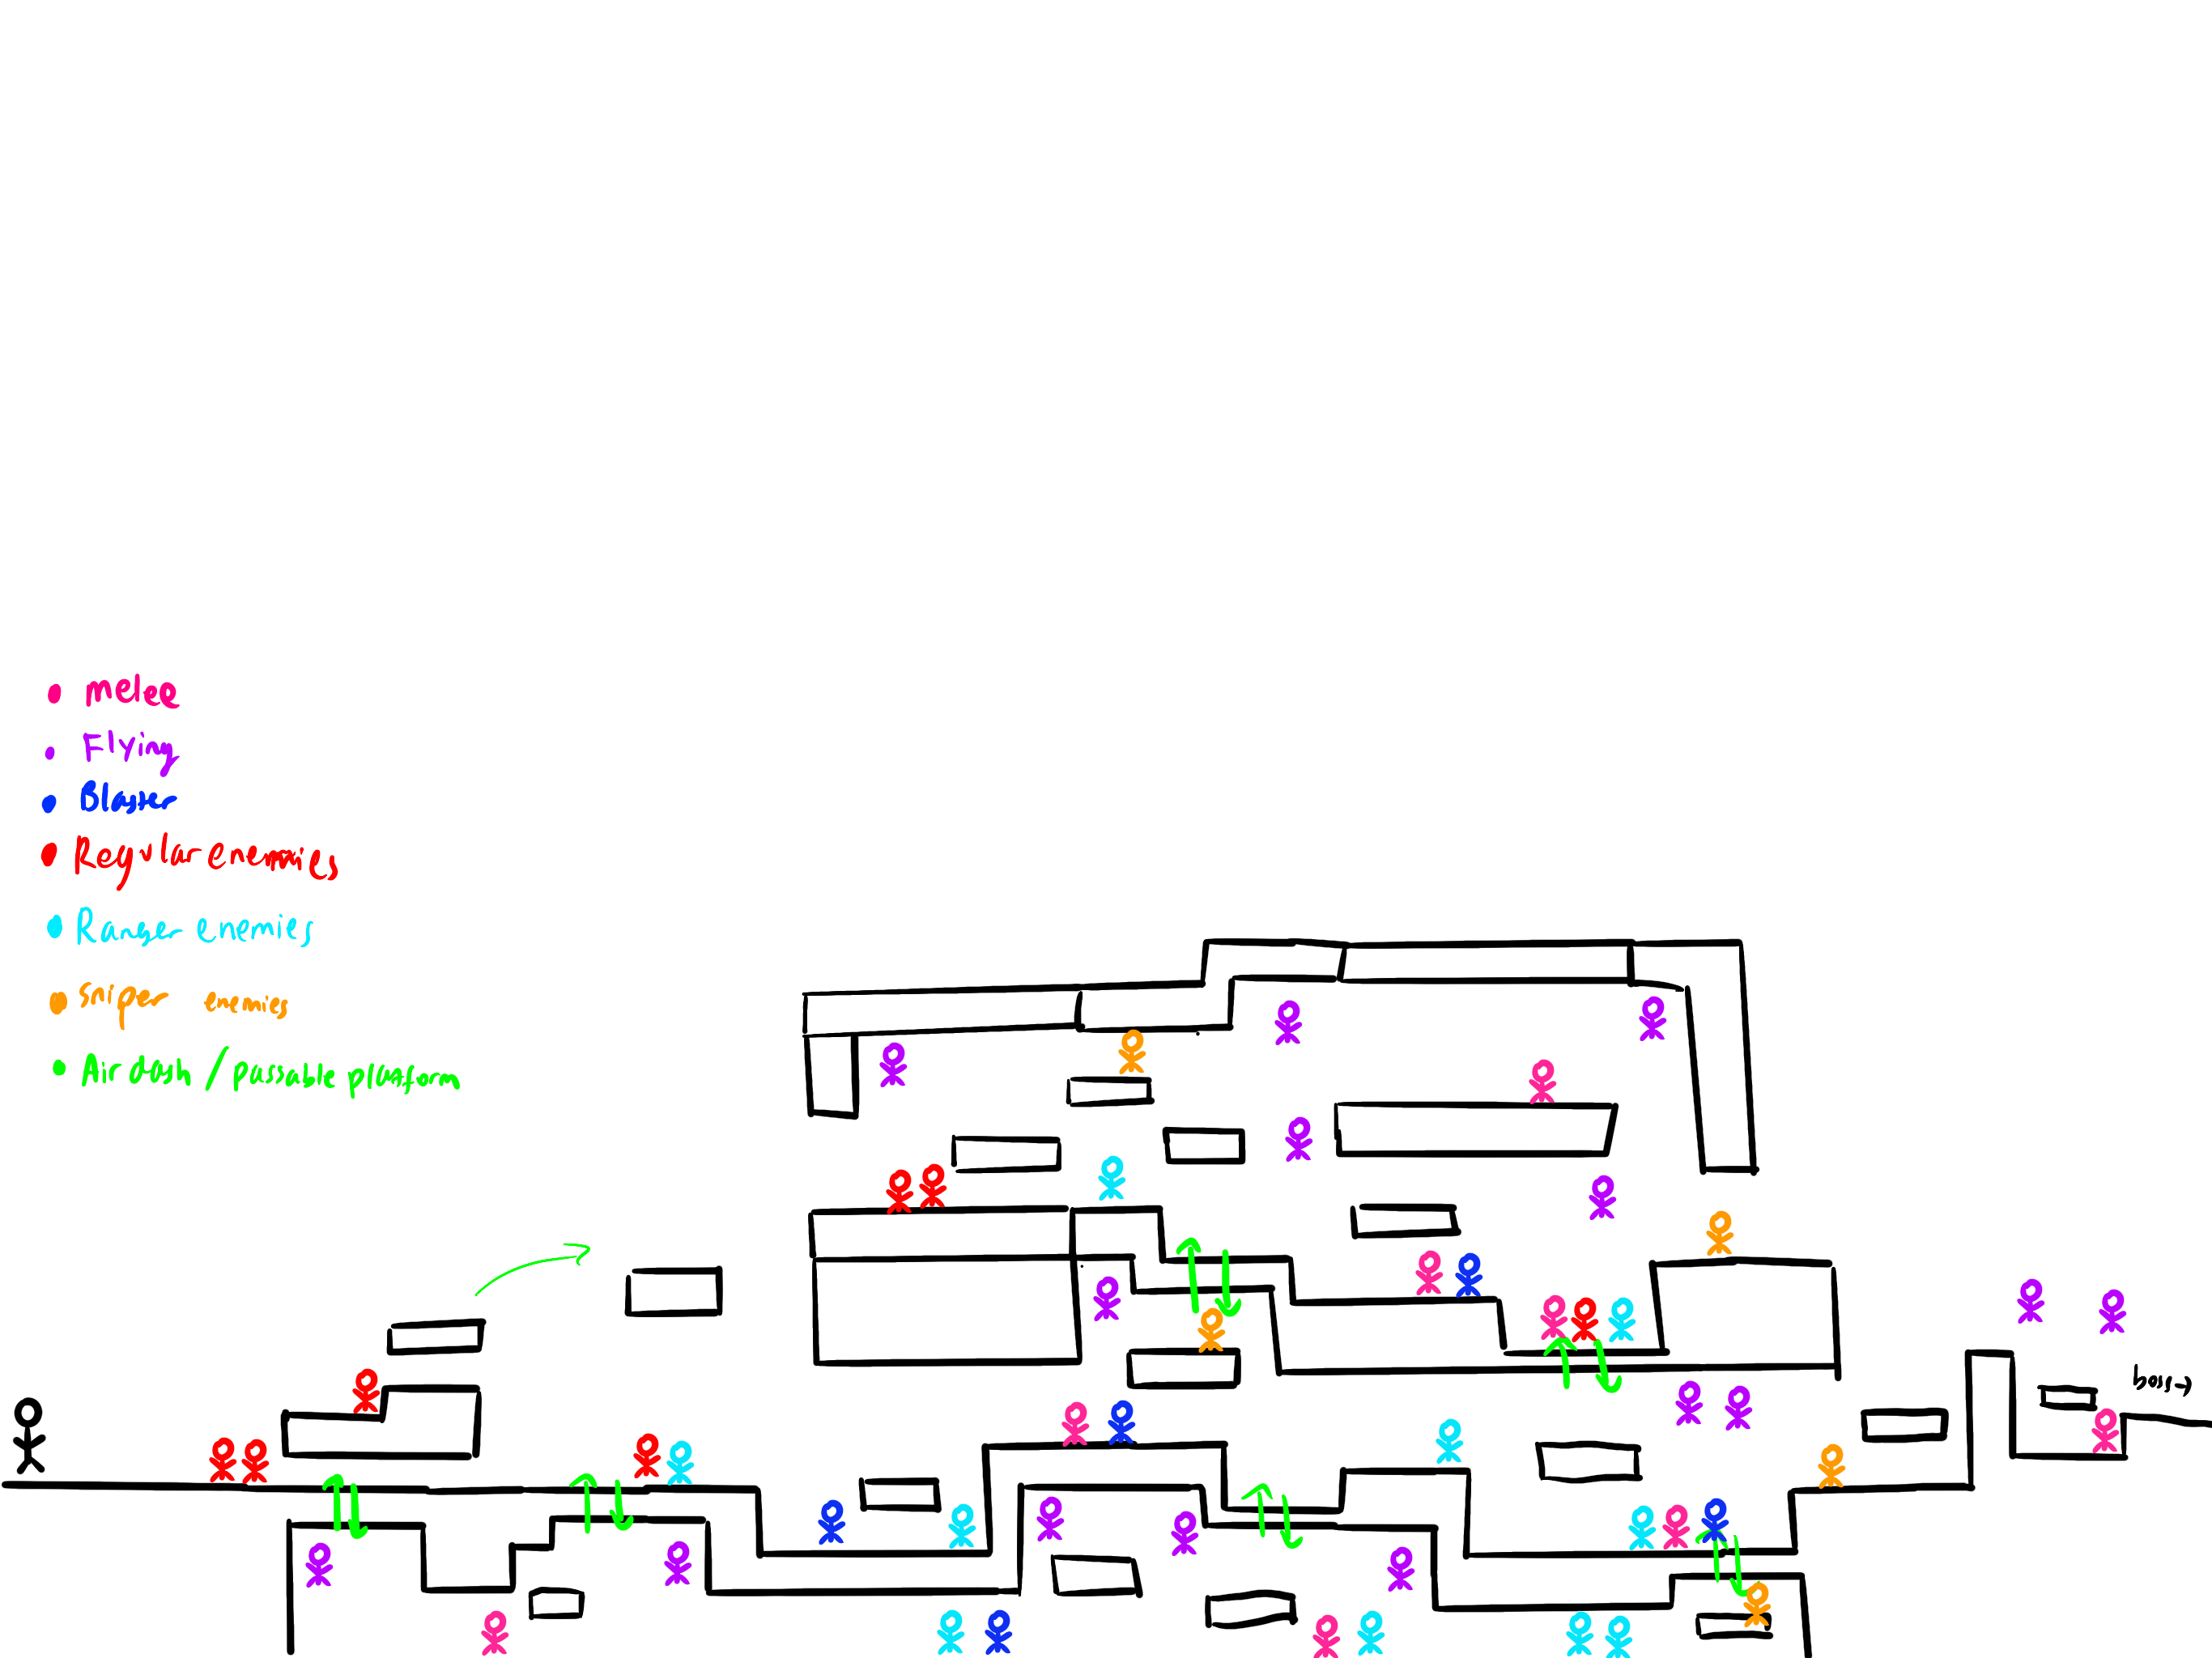 melee
Flying
Blaster
Regular enemies
Range enemies
Sniper enemies
Air dash / passable platform
boss→